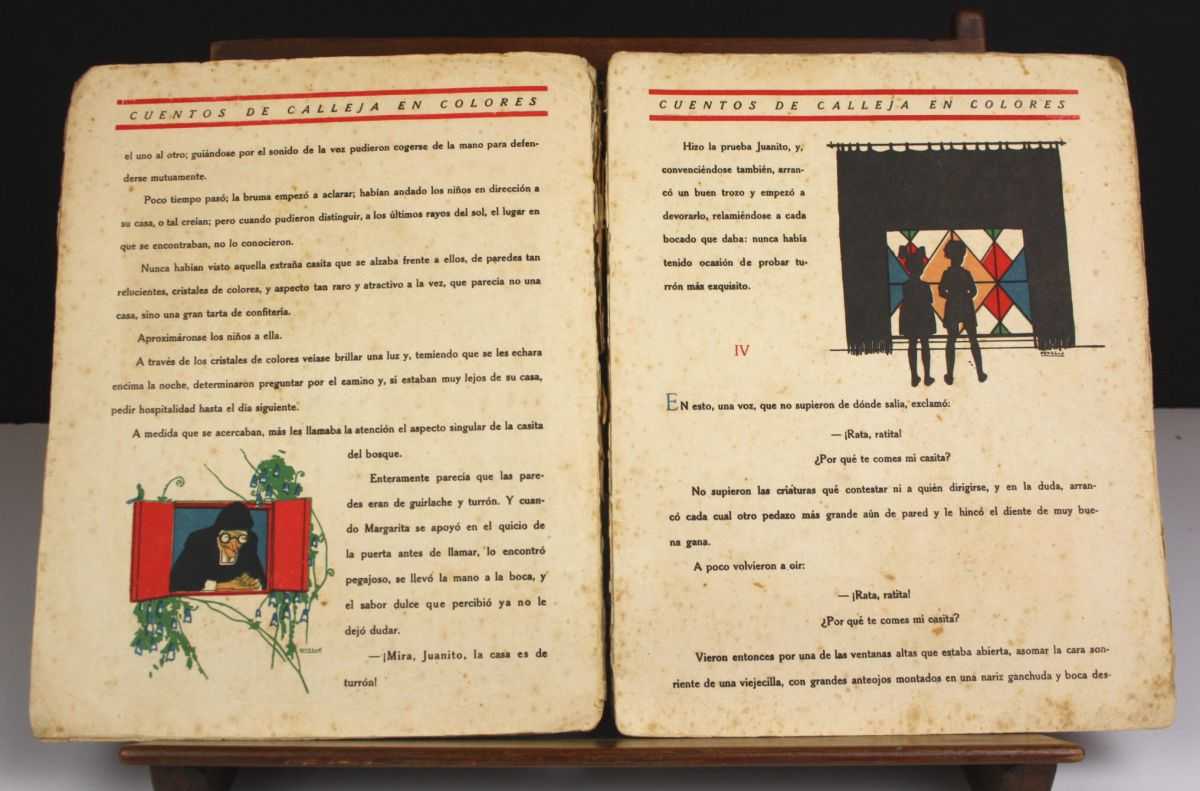 CUENTOS DE CALLEJA EN COLORES
el uno al otro; guiándose por el sonido de la voz pudieron cogerse de la mano para defen-
derse mutuamente.
Poco tiempo pasó; la bruma empezó a aclarar; habían andado los niños en dirección a
su casa, o tal creían; pero cuando pudieron distinguir, a los últimos rayos del sol, el lugar en
que se encontraban, no lo conocieron.
Nunca habían visto aquella extraña casita que se alzaba frente a ellos, de paredes tan
relucientes, cristales de colores, y aspecto tan raro y atractivo a la vez, que parecía no una
casa, sino una gran tarta de confitería.
Aproximáronse los niños a ella.
A través de los cristales de colores veíase brillar una luz y, temiendo que se les echara
encima la noche, determinaron preguntar por el camino y, si estaban muy lejos de su casa,
pedir hospitalidad hasta el día siguiente.
A medida que se acercaban, más les llamaba la atención el aspecto singular de la casita
del bosque.
Enteramente parecía que las pare-
des eran de guirlache y turrón. Y cuan-
do Margarita se apoyó en el quicio de
la puerta antes de llamar, lo encontró
pegajoso, se llevó la mano a la boca, y
el sabor dulce que percibió ya no le
dejó dudar.
—¡Mira, Juanito, la casa es de
turrón!
CUENTOS DE CALLEJA EN COLORES
Hizo la prueba Juanito, y,
convenciéndose también, arran-
có un buen trozo y empezó a
devorarlo, relamiéndose a cada
bocado que daba: nunca había
tenido ocasión de probar tu-
rrón más exquisito.
IV
EN esto, una voz, que no supieron de dónde salía, exclamó:
— ¡Rata, ratita!
¿Por qué te comes mi casita?
No supieron las criaturas qué contestar ni a quién dirigirse, y en la duda, arran-
có cada cual otro pedazo más grande aún de pared y le hincó el diente de muy bue-
na gana.
A poco volvieron a oir:
— ¡Rata, ratita!
¿Por qué te comes mi casita?
Vieron entonces por una de las ventanas altas que estaba abierta, asomar la cara son-
riente de una viejecilla, con grandes anteojos montados en una nariz ganchuda y boca des-